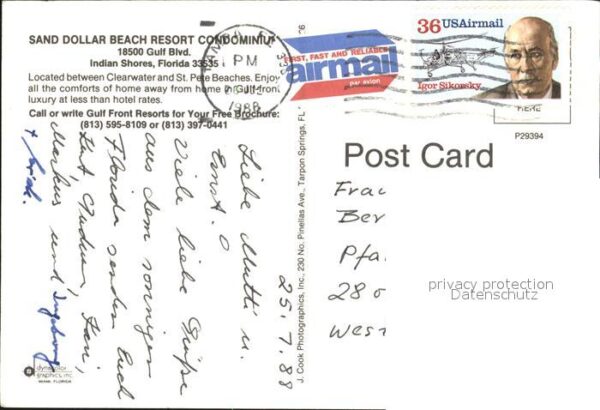 SAND DOLLAR BEACH RESORT CONDOMINIU
18500 Gulf Blvd.
Indian Shores, Florida 33535
Located between Clearwater and St. Pete Beaches. Enjoy
all the comforts of home away from home in Gulf-front
luxury at less than hotel rates.
Call or write Gulf Front Resorts for Your Free Brochure:
(813) 595-8109 or (813) 397-0441
PM
1988
FIRST, FAST AND RELIABLE
airmail
par avion
36 USAirmail
Igor Sikorsky
HERE
P29394
Post Card
25.7.88
Liebe Mutti u.
Ernst.
Viele liebe Grüße
aus dem sonnigen
Florida senden Euch
Gudrun,
Markus und Ingeborg
dynacolor
graphics, inc.
MIAMI, FLORIDA
J. Cook Photographics, Inc., 230 No. Pinellas Ave., Tarpon Springs, FL
Frau
Ber
Pfa
28
West
privacy protection
Datenschutz